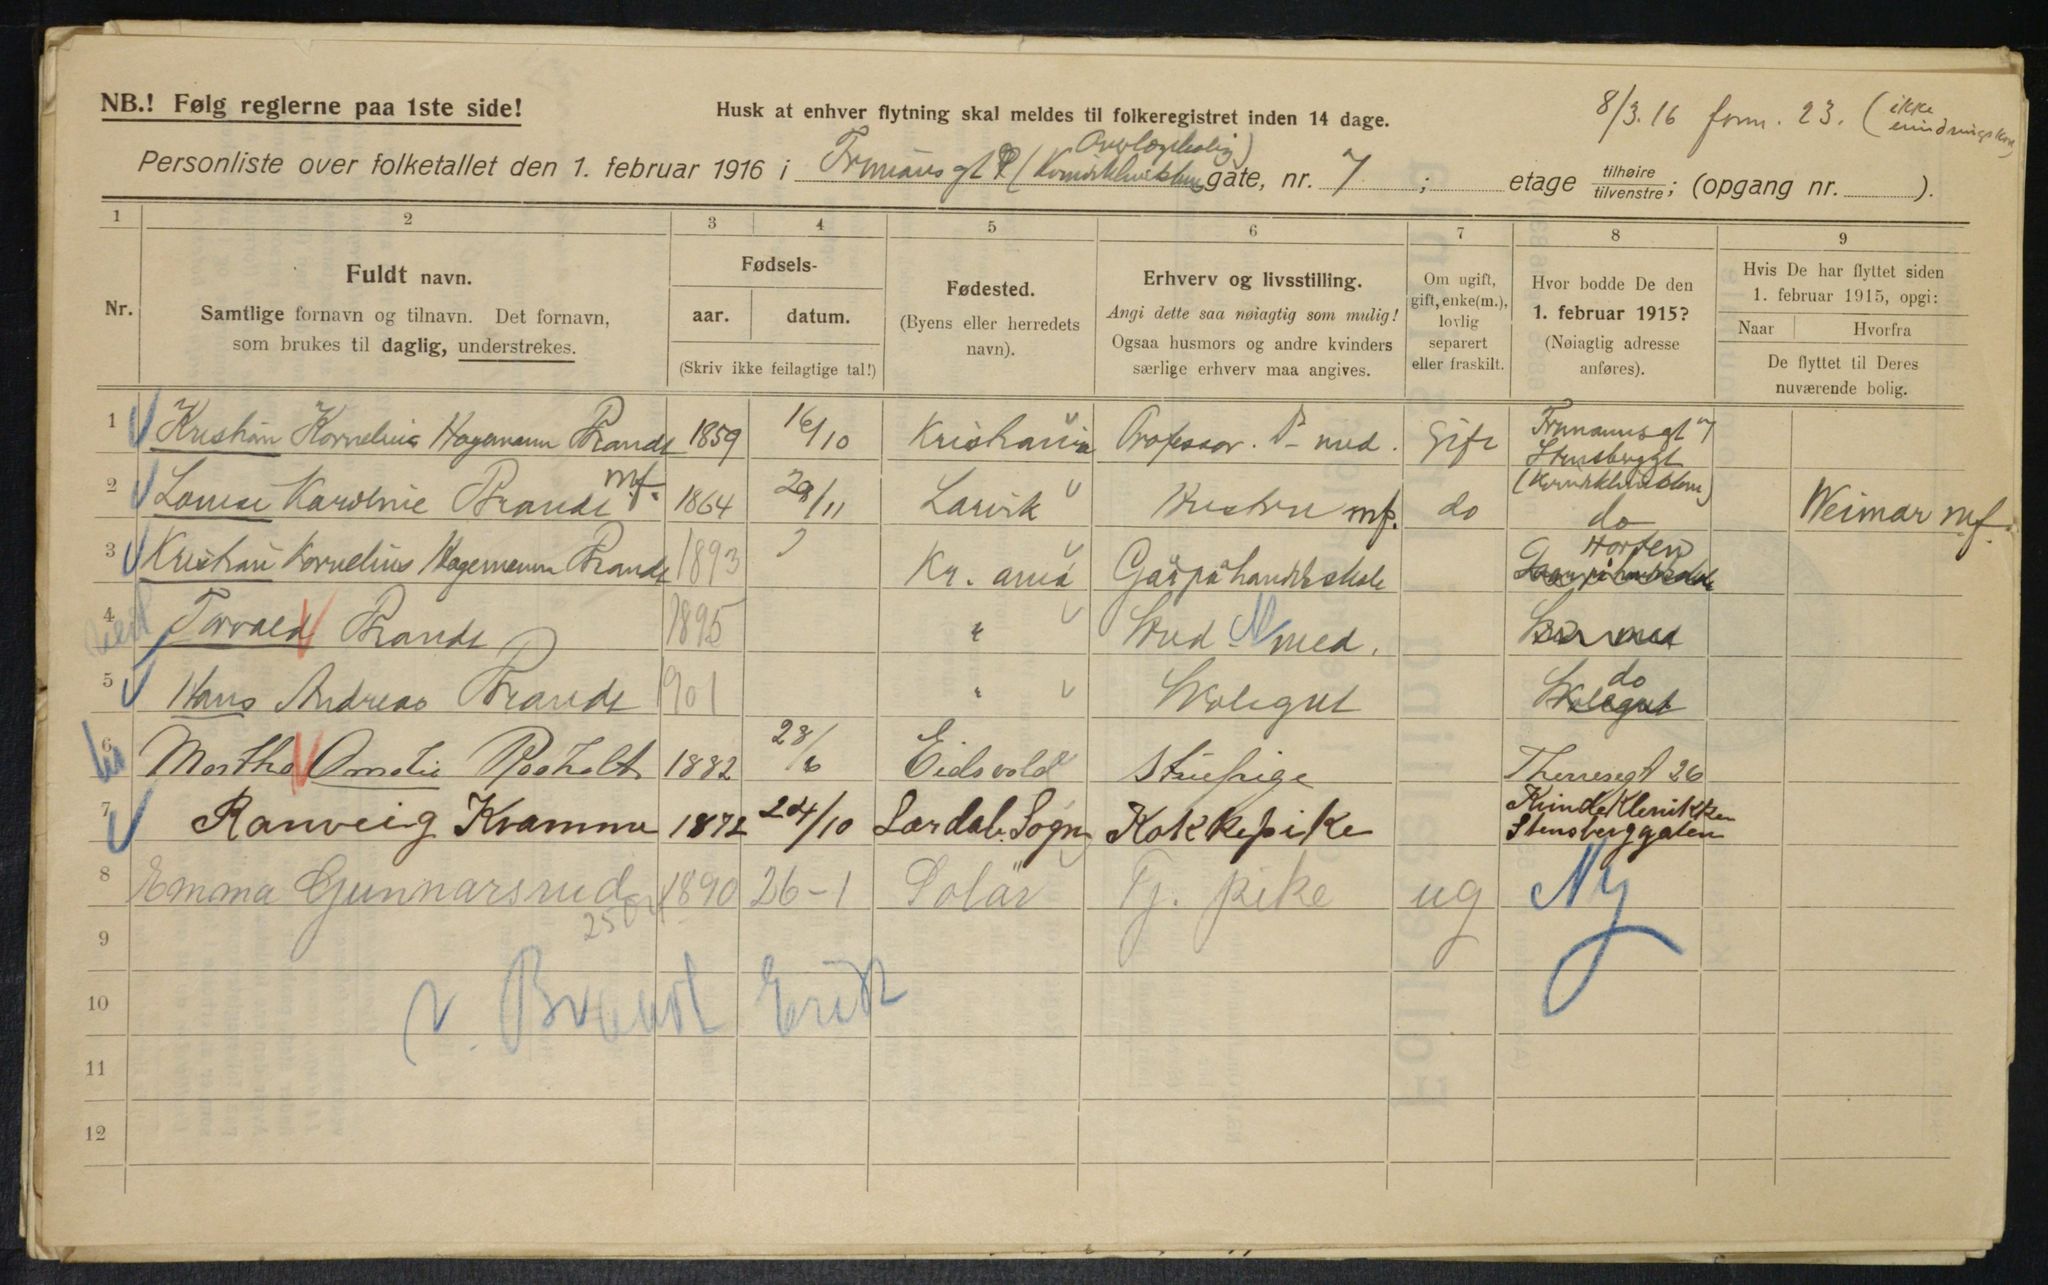 NB.! Følg reglerne paa 1ste side!
Husk at enhver flytning skal meldes til folkeregistret inden 14 dage.
8/3.16 form. 23. (ikke
Personliste over folketallet den 1. februar 1916 i gate, nr. 7; etage tilhøire/tilvenstre; (opgang nr. ).
1 2 3 4 5 6 7 8 9
Nr.
Fuldt navn.
Samtlige fornavn og tilnavn. Det fornavn,
som brukes til daglig, understrekes.
Fødsels-
aar. datum.
(Skriv ikke feilagtige tal!)
Fødested.
(Byens eller herredets
navn).
Erhverv og livsstilling.
Angi dette saa nøiagtig som mulig!
Ogsaa husmors og andre kvinders
særlige erhverv maa angives.
Om ugift,
gift, enke(m.),
lovlig
separert
eller fraskilt.
Hvor bodde De den
1. februar 1915?
(Nøiagtig adresse
anføres).
Hvis De har flyttet siden
1. februar 1915, opgi:
Naar Hvorfra
De flyttet til Deres
nuværende bolig.
1 Kristian Kornelius Hagemann Brandt 1859 16/10 Kristiania Professor. med. Gift
2 Louise Karoline Brandt mf. 1864 29/11 Larvik Hustru mf. do do Weimar mf.
3 Kristian Kornelius Hagemann Brandt 1893 Kr. ania Går på handelsskole Horten
4 Torvald Brandt 1895 " Stud. med.
5 Hans Andreas Brandt 1901 " Skolegut do
6 Martha Amalie Røsholt 1882 28/6 Eidsvold Stuepige Theresegt 26
7 Ranveig Kramme 1872 24/10 Lærdal. Sogn Kokkepike Kvindeklenikken
Stensberggaten
8 Emma Gunnarsrud 1890 26-1 Solør Tj. pike ug Ny
9
10 v. Brandt
11
12